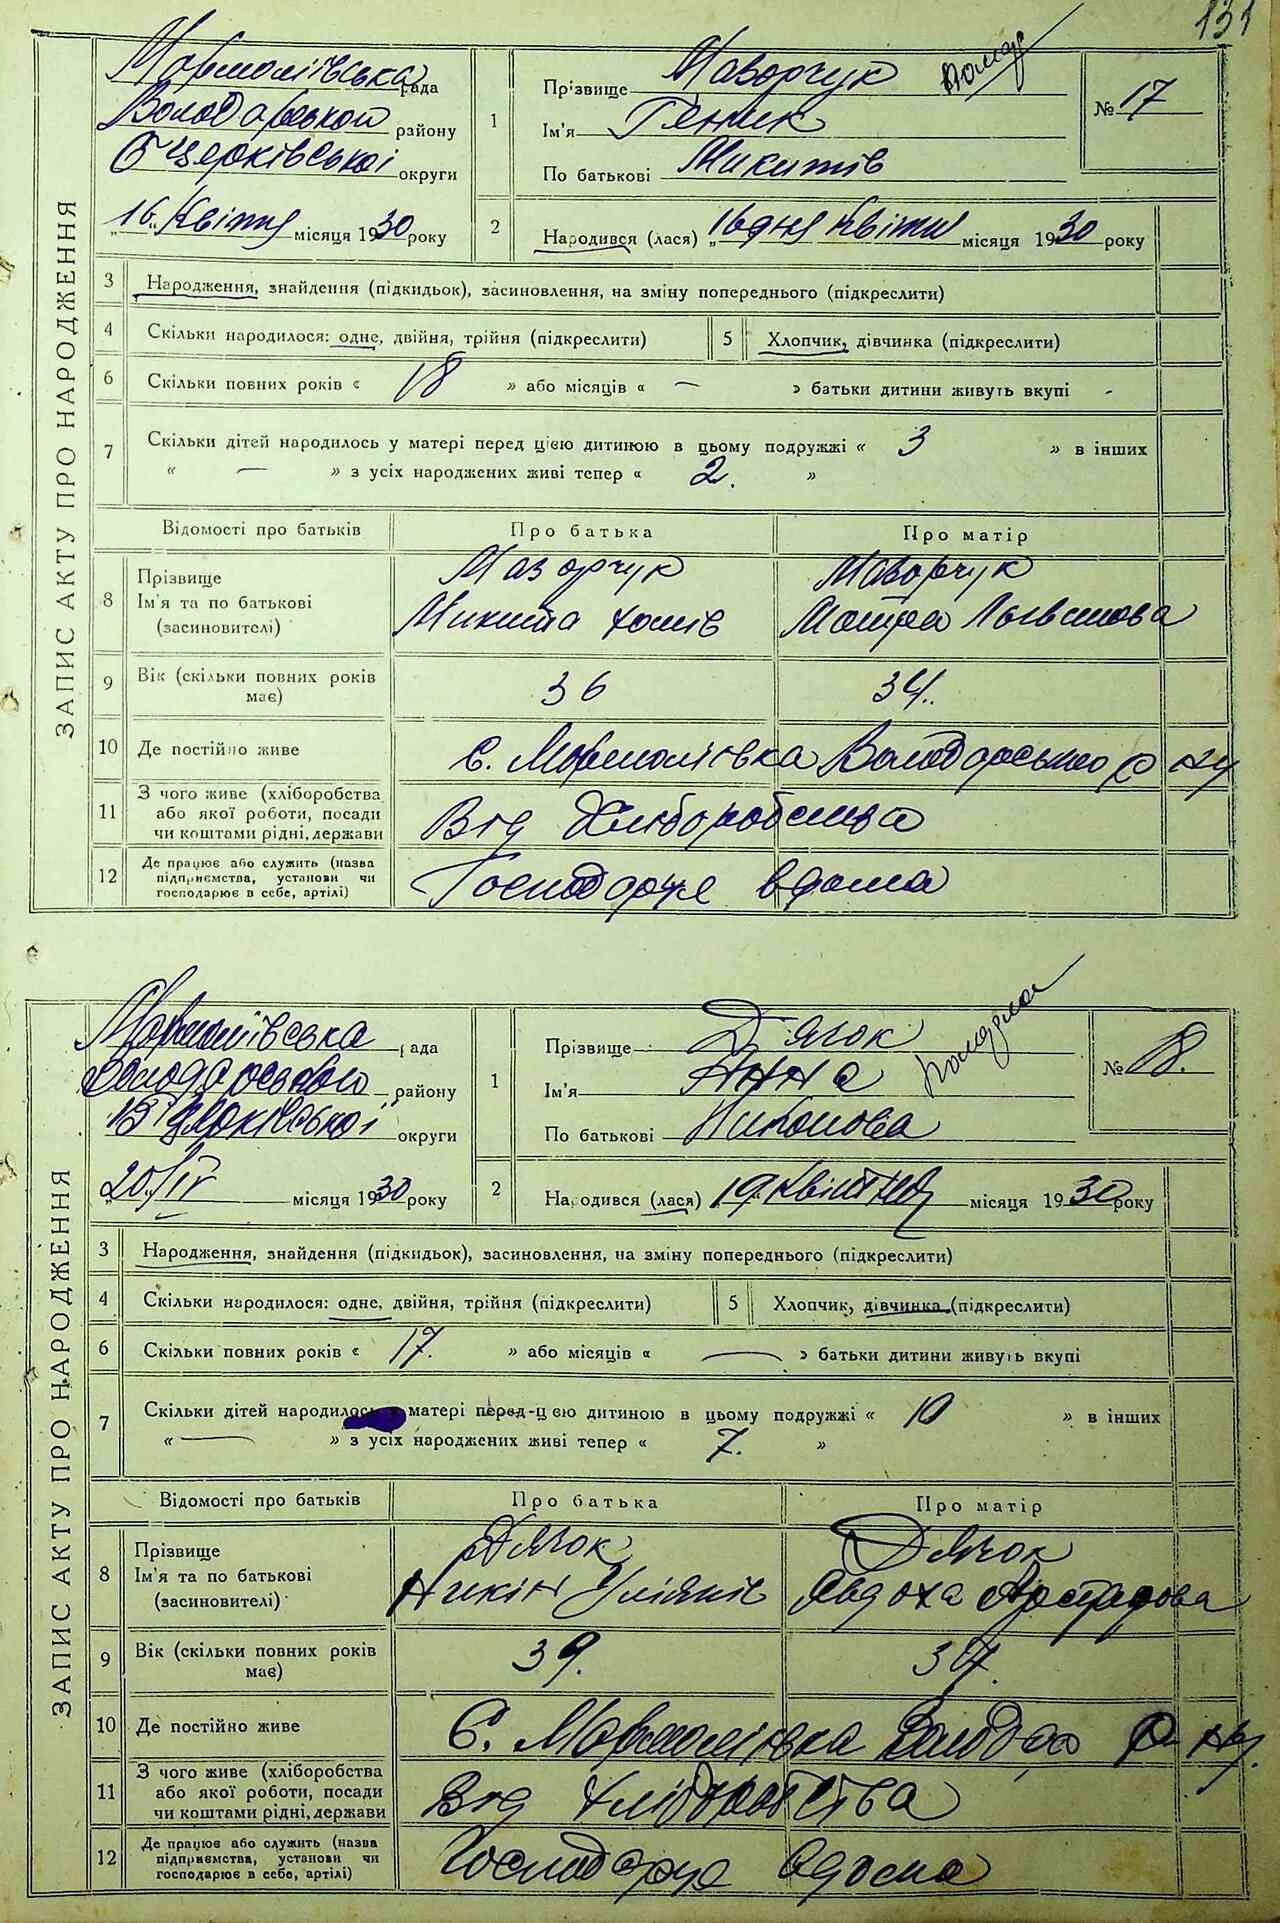 131
ЗАПИС АКТУ ПРО НАРОДЖЕННЯ
Мармоліївська рада
Володарської району
Б Церківської округи
„16„ Квітня місяця 1930 року
1
Прізвище Мазорчук
Ім'я
По батькові Микитів
№ 17
2
Народився (лася) „16 дня Квітня місяця 1930 року
3 Народження, знайдення (підкидьок), засиновлення, на зміну попереднього (підкреслити)
4 Скільки народилося: одне, двійня, трійня (підкреслити)
5 Хлопчик, дівчинка (підкреслити)
6 Скільки повних років « 18 » або місяців « — » батьки дитини живуть вкупі
7 Скільки дітей народилось у матері перед цією дитиною в цьому подружжі « 3 » в інших
« — » з усіх народжених живі тепер « 2. »
Відомості про батьків Про батька Про матір
8 Прізвище
Ім'я та по батькові
(засиновителі)
Мазорчук Мазорчук
Микита Хомів Мотря
9 Вік (скільки повних років має) 36 34.
10 Де постійно живе с. Мармоліївка Володарського р ну
11 З чого живе (хліборобства або якої роботи, посади чи коштами рідні, держави Від Хліборобства
12 Де працює або служить (назва підприємства, установи чи господарює в себе, артілі) Господарює вдома
ЗАПИС АКТУ ПРО НАРОДЖЕННЯ
Мармоліївська рада
Володарської району
Б Церківської округи
„20/IV місяця 1930 року
1
Прізвище Дячок
Ім'я Анна
По батькові
№ 18.
2
Народився (лася) 19. Квітня місяця 1930 року
3 Народження, знайдення (підкидьок), засиновлення, на зміну попереднього (підкреслити)
4 Скільки народилося: одне, двійня, трійня (підкреслити)
5 Хлопчик, дівчинка (підкреслити)
6 Скільки повних років « 17. » або місяців « — » батьки дитини живуть вкупі
7 Скільки дітей народилось у матері перед цією дитиною в цьому подружжі « 10 » в інших
« — » з усіх народжених живі тепер « 7. »
Відомості про батьків Про батька Про матір
8 Прізвище
Ім'я та по батькові
(засиновителі)
Дячок Дячок
Явдоха
9 Вік (скільки повних років має) 39. 37.
10 Де постійно живе С. Мармоліївка Волод р ну.
11 З чого живе (хліборобства або якої роботи, посади чи коштами рідні, держави Від хліборобства
12 Де працює або служить (назва підприємства, установи чи господарює в себе, артілі) Господарює вдома